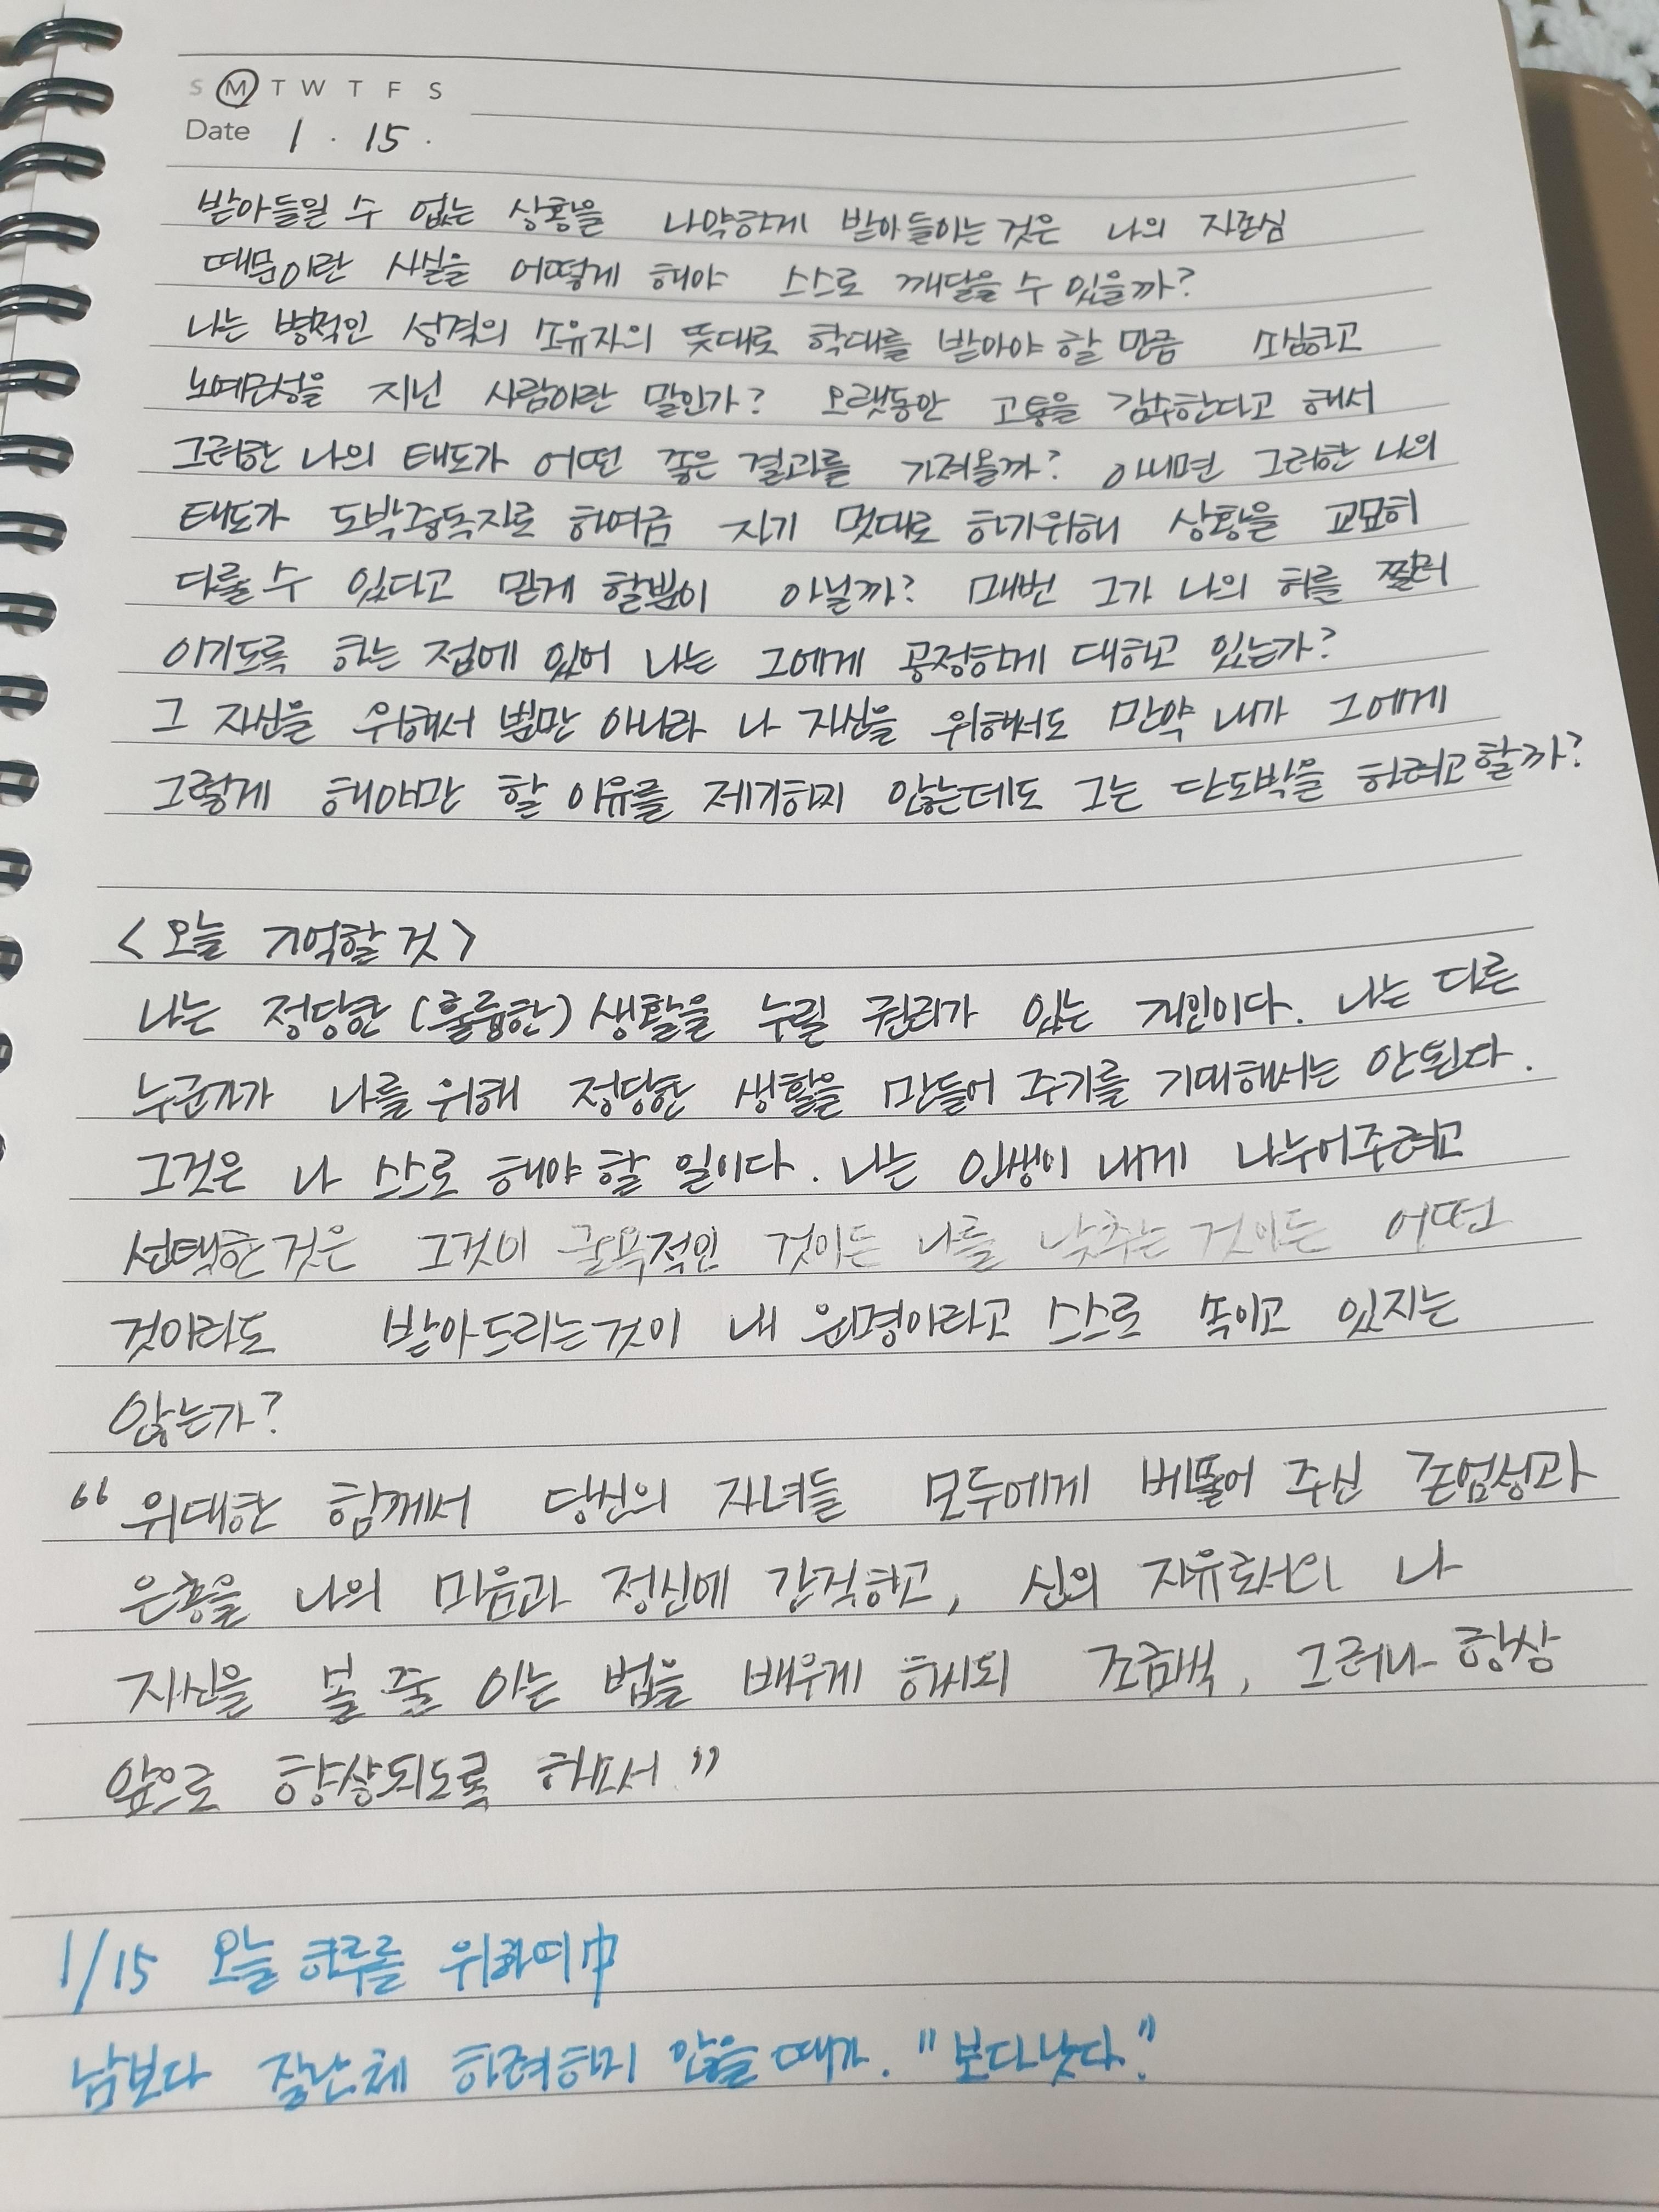 S M T W T F S
Date 1 . 15 .
받아들일 수 없는 상황을 나약하게 받아들이는 것은 나의 자존심
때문이란 사실을 어떻게 해야 스스로 깨달을 수 있을까?
나는 병적인 성격의 소유자의 뜻대로 학대를 받아야 할 만큼 소심하고
노예근성을 지닌 사람이란 말인가? 오랫동안 고통을 감수한다고 해서
그러한 나의 태도가 어떤 좋은 결과를 가져올까? 아니면 그러한 나의
태도가 도박중독자로 하여금 자기 멋대로 하기위해 상황을 교묘히
다룰 수 있다고 믿게 할뿐이 아닐까? 매번 그가 나의 허를 찔러
이기도록 하는 점에 있어 나는 그에게 공정하게 대하고 있는가?
그 자신을 위해서 뿐만 아니라 나 자신을 위해서도 만약 내가 그에게
그렇게 해야만 할 이유를 제기하지 않는데도 그는 단도박을 하려고할까?
<오늘 기억할 것>
나는 정당한 (훌륭한) 생활을 누릴 권리가 있는 개인이다. 나는 다른
누군가가 나를 위해 정당한 생활을 만들어 주기를 기대해서는 안된다.
그것은 나 스스로 해야 할 일이다. 나는 인생이 내게 나누어주려고
선택한 것은 그것이 굴욕적인 것이든 나를 낮추는 것이든 어떤
것이라도 받아드리는것이 내 운명이라고 스스로 속이고 있지는
않는가?
“ 위대한 힘께서 당신의 자녀들 모두에게 베풀어 주신 존엄성과
은총을 나의 마음과 정신에 간직하고, 신의 자유로서의 나
자신을 볼 줄 아는 법을 배우게 하시되 조금씩, 그러나 항상
앞으로 향상되도록 하소서 ”
1/15 오늘 하루를 위하여
남보다 잘난체 하려하지 않을 때가. "보다낫다."